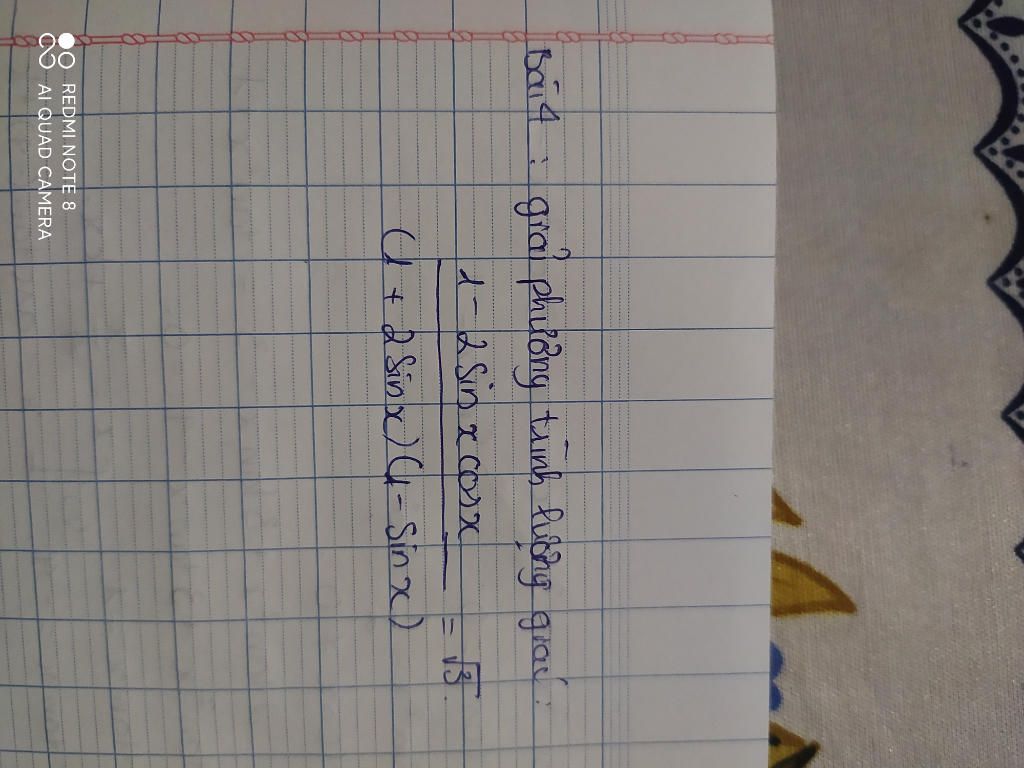 Bài 4 : giải phương trình lượng giác :
1 - 2 sin x cos x
= √3.
(1 + 2 sin x) (1 - sin x)
REDMI NOTE 8
AI QUAD CAMERA